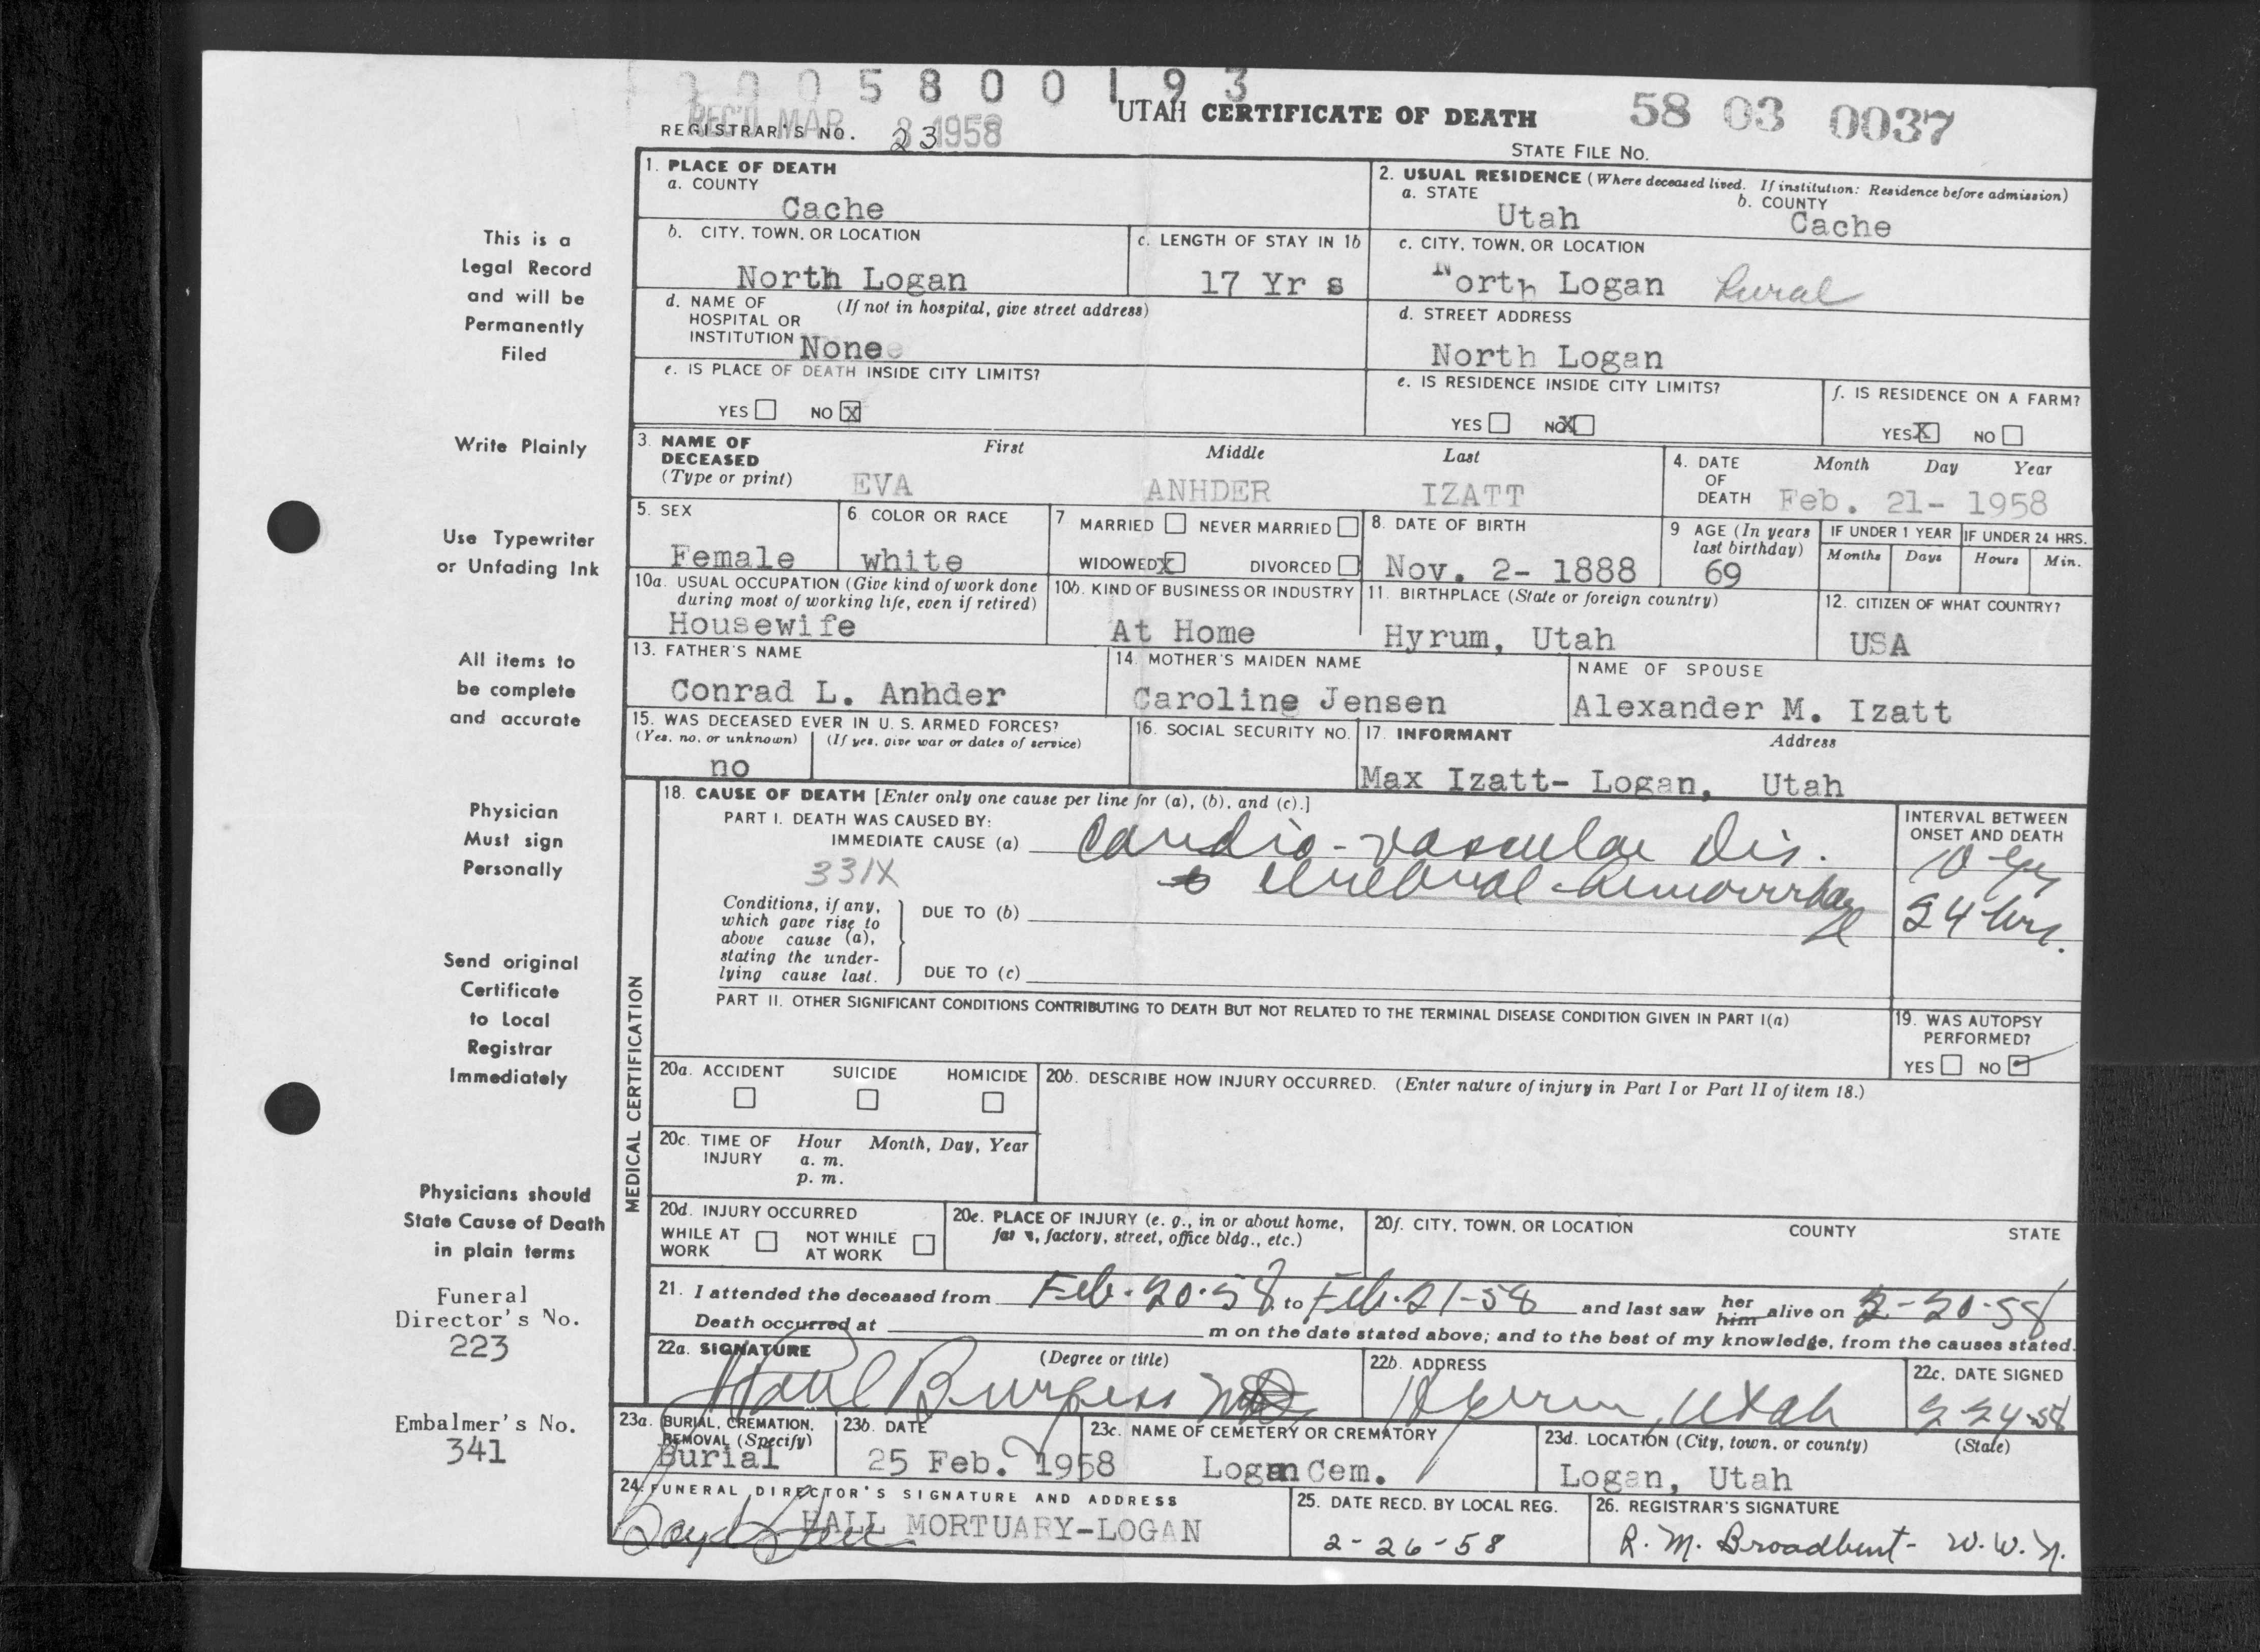 0 0 0 5 8 0 0 1 9 3
REC'D MAR 3 1958
UTAH CERTIFICATE OF DEATH
58 03 0037
REGISTRAR'S NO. 23
STATE FILE NO.
1. PLACE OF DEATH
a. COUNTY
Cache
2. USUAL RESIDENCE (Where deceased lived. If institution: Residence before admission)
a. STATE
Utah
b. COUNTY
Cache
b. CITY, TOWN, OR LOCATION
North Logan
c. LENGTH OF STAY IN 1b
17 Yr s
c. CITY, TOWN, OR LOCATION
North Logan Rural
d. NAME OF HOSPITAL OR INSTITUTION (If not in hospital, give street address)
None
d. STREET ADDRESS
North Logan
e. IS PLACE OF DEATH INSIDE CITY LIMITS?
YES NO X
e. IS RESIDENCE INSIDE CITY LIMITS?
YES NO X
f. IS RESIDENCE ON A FARM?
YES X NO
3. NAME OF DECEASED (Type or print)
First Middle Last
EVA ANHDER IZATT
4. DATE OF DEATH
Month Day Year
Feb. 21- 1958
5. SEX
Female
6 COLOR OR RACE
white
7 MARRIED NEVER MARRIED
WIDOWED X DIVORCED
8. DATE OF BIRTH
Nov. 2- 1888
9 AGE (In years last birthday)
69
IF UNDER 1 YEAR
Months Days
IF UNDER 24 HRS.
Hours Min.
10a. USUAL OCCUPATION (Give kind of work done during most of working life, even if retired)
Housewife
10b. KIND OF BUSINESS OR INDUSTRY
At Home
11. BIRTHPLACE (State or foreign country)
Hyrum, Utah
12. CITIZEN OF WHAT COUNTRY?
USA
13. FATHER'S NAME
Conrad L. Anhder
14. MOTHER'S MAIDEN NAME
Caroline Jensen
NAME OF SPOUSE
Alexander M. Izatt
15. WAS DECEASED EVER IN U. S. ARMED FORCES?
(Yes, no, or unknown) (If yes, give war or dates of service)
no
16. SOCIAL SECURITY NO.
17. INFORMANT Address
Max Izatt- Logan, Utah
MEDICAL CERTIFICATION
18. CAUSE OF DEATH [Enter only one cause per line for (a), (b), and (c).]
PART I. DEATH WAS CAUSED BY:
IMMEDIATE CAUSE (a) Cardio-vascular Dis.
331X
cerebral hemorrhage
INTERVAL BETWEEN ONSET AND DEATH
10 yrs
24 hrs.
Conditions, if any, which gave rise to above cause (a), stating the underlying cause last.
DUE TO (b)
DUE TO (c)
PART II. OTHER SIGNIFICANT CONDITIONS CONTRIBUTING TO DEATH BUT NOT RELATED TO THE TERMINAL DISEASE CONDITION GIVEN IN PART I(a)
19. WAS AUTOPSY PERFORMED?
YES NO
20a. ACCIDENT SUICIDE HOMICIDE
20b. DESCRIBE HOW INJURY OCCURRED. (Enter nature of injury in Part I or Part II of item 18.)
20c. TIME OF INJURY
Hour Month, Day, Year
a. m.
p. m.
20d. INJURY OCCURRED
WHILE AT WORK NOT WHILE AT WORK
20e. PLACE OF INJURY (e. g., in or about home, farm, factory, street, office bldg., etc.)
20f. CITY, TOWN, OR LOCATION COUNTY STATE
21. I attended the deceased from Feb. 20-58, to Feb. 21-58 and last saw her him alive on 2-20-58
Death occurred at m on the date stated above; and to the best of my knowledge, from the causes stated.
22a. SIGNATURE (Degree or title)
Paul Burgess MD
22b. ADDRESS
Hyrum, Utah
22c. DATE SIGNED
2-24-58
23a. BURIAL, CREMATION, REMOVAL (Specify)
Burial
23b. DATE
25 Feb. 1958
23c. NAME OF CEMETERY OR CREMATORY
Logan Cem.
23d. LOCATION (City, town, or county) (State)
Logan, Utah
24. FUNERAL DIRECTOR'S SIGNATURE AND ADDRESS
Boyd Hall HALL MORTUARY-LOGAN
25. DATE RECD. BY LOCAL REG.
2-26-58
26. REGISTRAR'S SIGNATURE
R. M. Broadbent- W. W. N.
This is a
Legal Record
and will be
Permanently
Filed
Write Plainly
Use Typewriter
or Unfading Ink
All items to
be complete
and accurate
Physician
Must sign
Personally
Send original
Certificate
to Local
Registrar
Immediately
Physicians should
State Cause of Death
in plain terms
Funeral
Director's No.
223
Embalmer's No.
341